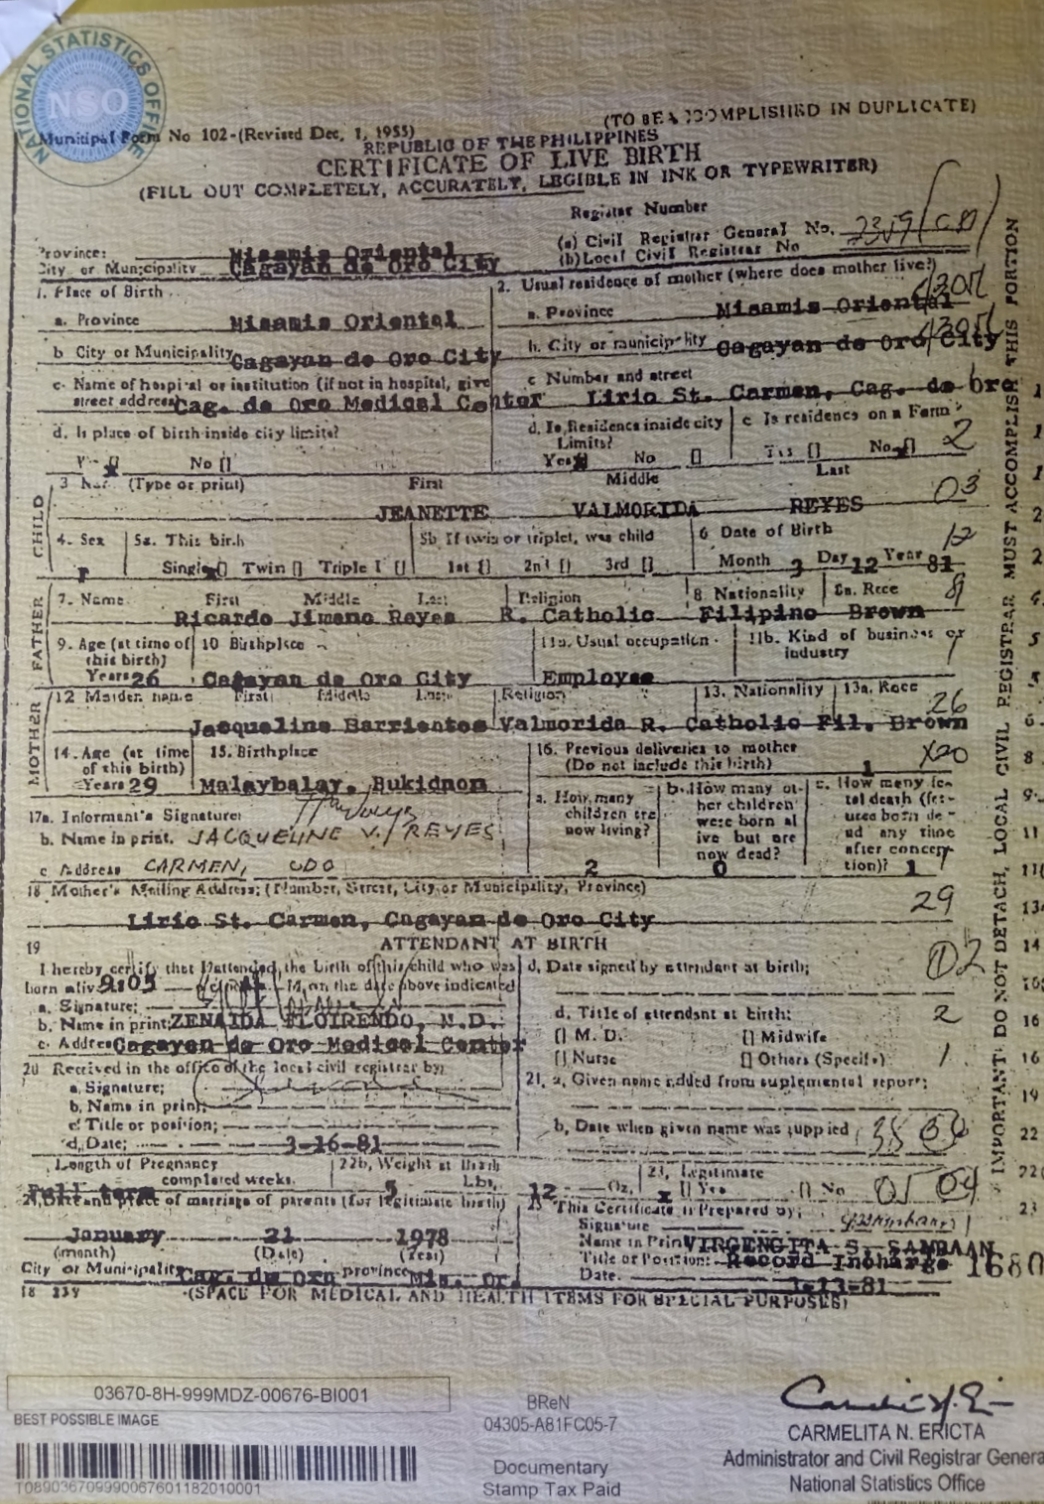 NATIONAL STATISTICS OFFICE
NSO
(TO BE ACCOMPLISHED IN DUPLICATE)
Municipal Form No 102-(Revised Dec. 1, 1955)
REPUBLIC OF THE PHILIPPINES
CERTIFICATE OF LIVE BIRTH
(FILL OUT COMPLETELY, ACCURATELY, LEGIBLE IN INK OR TYPEWRITER)
Register Number
(a) Civil Registrar General No.
(b) Local Civil Registrar No
Province: Misamis Oriental
City or Municipality Cagayan de Oro City
1. Place of Birth
2. Usual residence of mother (where does mother live?)
a. Province Misamis Oriental
a. Province Misamis Oriental
b City or Municipality Cagayan de Oro City
b. City or municipality Cagayan de Oro City
c. Name of hospital or institution (if not in hospital, give street address) Cag. de Oro Medical Center
c Number and street
Lirio St. Carmen, Cag. de Oro
d. Is place of birth inside city limits?
Yes [x] No []
d. Is Residence inside city Limits?
Yes [x] No []
e Is residence on a Farm?
Yes [] No [x] 2
CHILD
3 Name (Type or print) First Middle Last
JEANETTE VALMORIDA REYES 03
4. Sex F
5a. This birth
Single [x] Twin [] Triplet []
5b If twin or triplet, was child
1st [] 2nd [] 3rd []
6 Date of Birth 12
Month 3 Day 12 Year 81
FATHER
7. Name First Middle Last Religion 8 Nationality 8a. Race
Ricardo Jimeno Reyes R. Catholic Filipino Brown
9. Age (at time of this birth) Years 26
10 Birthplace
Cagayan de Oro City
11a. Usual occupation
Employee
11b. Kind of business or industry
MOTHER
12 Maiden name First Middle Last Religion 13. Nationality 13a. Race 26
Jacqueline Barrientos Valmorida R. Catholic Fil. Brown
14. Age (at time of this birth) Years 29
15. Birthplace
Malaybalay, Bukidnon
16. Previous deliveries to mother (Do not include this birth) 1 X20
a. How many children are now living? 2
b. How many other children were born alive but are now dead? 0
c. How many fetal death (fetuses born dead any time after conception)? 1
17a. Informant's Signature:
b. Name in print. JACQUELINE V. REYES
c Address CARMEN, CDO
18 Mother's Mailing Address; (Number, Street, City or Municipality, Province) 29
Lirio St. Carmen, Cagayan de Oro City
19 ATTENDANT AT BIRTH
I hereby certify that I attended the birth of this child who was born alive 9:05 M, on the date above indicated
a. Signature;
b. Name in print; ZENAIDA FLOIRENDO, M.D.
c. Address Cagayan de Oro Medical Center
d. Date signed by attendant at birth;
d. Title of attendant at birth; 2
[] M. D. [] Midwife
[] Nurse [] Others (Specify) 1
20 Received in the office of the local civil registrar by;
a. Signature;
b. Name in print;
c. Title or position;
d. Date; 3-16-81
21. a. Given name added from suplemental report;
b, Date when given name was supplied
Length of Pregnancy completed weeks.
Full term
22b, Weight at Birth
5 Lbs. 12 Oz.
23, Legitimate
x [] Yes [] No
24, Date and place of marriage of parents (for legitimate birth)
January 21 1978
(month) (Date) (Year)
City or Municipality Cag. de Oro province Mis. Or.
25 This Certificate is Prepared by;
Signature
Name in Print VIRGENCITA S. SAMBAAN
Title or Position: Record Incharge
Date. 3-13-81
1680
(SPACE FOR MEDICAL AND HEALTH ITEMS FOR SPECIAL PURPOSES)
IMPORTANT: DO NOT DETACH, LOCAL CIVIL REGISTRAR MUST ACCOMPLISH THIS PORTION
03670-8H-999MDZ-00676-BI001
BEST POSSIBLE IMAGE
T089036709990067601182010001
BReN
04305-A81FC05-7
Documentary
Stamp Tax Paid
CARMELITA N. ERICTA
Administrator and Civil Registrar Genera
National Statistics Office